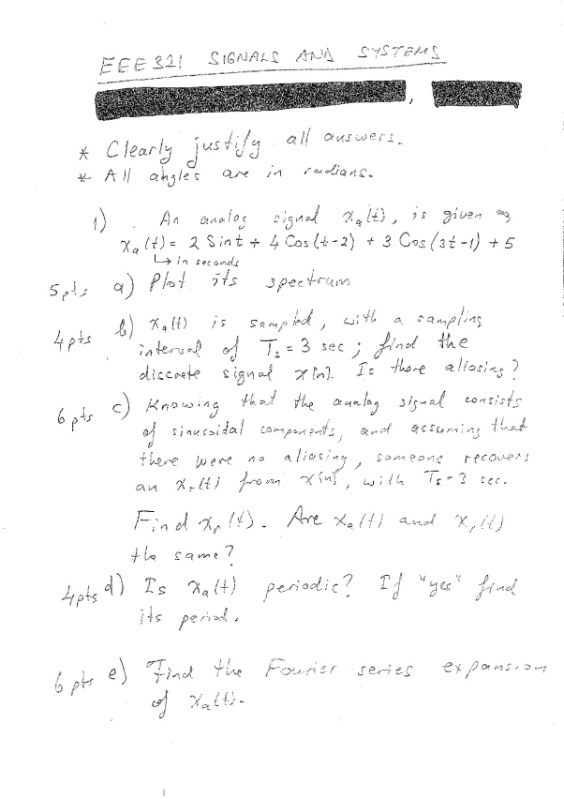 EEE 321 SIGNALS AND SYSTEMS
* Clearly justify all answers.
* All angles are in radians.
1) An analog signal xₐ(t), is given as
xₐ(t) = 2 Sint + 4 Cos(t-2) + 3 Cos(3t-1) + 5
↳ in seconds
5 pts a) Plot its spectrum
4 pts b) xₐ(t) is sampled, with a sampling
interval of Tₛ = 3 sec; find the
discrete signal x[n]. Is there aliasing?
6 pts c) Knowing that the analog signal consists
of sinusoidal components, and assuming that
there were no aliasing, someone recovers
an xᵣ(t) from x[n], with Tₛ = 3 sec.
Find xᵣ(t). Are xₐ(t) and xᵣ(t)
the same?
4pts d) Is xₐ(t) periodic? If "yes" find
its period.
6 pts e) Find the Fourier series expansion
of xₐ(t).